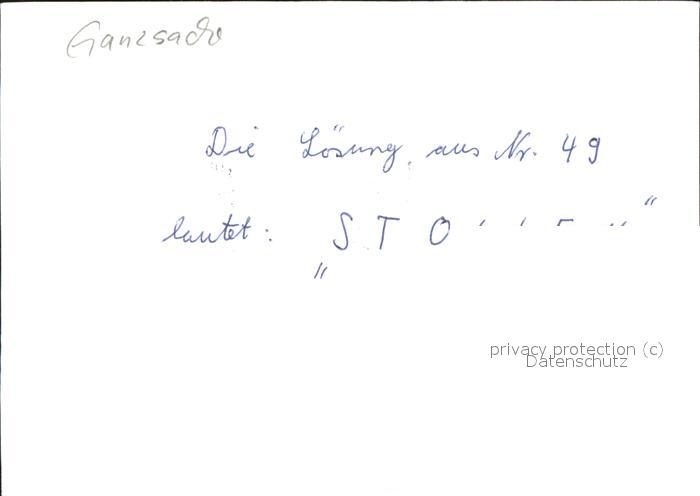 Ganzsache
Die Lösung aus Nr. 49
lautet: „S T O ' ' - .."
privacy protection (c)
Datenschutz